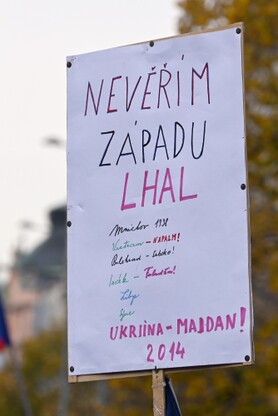 NEVĚŘÍM
ZÁPADU
LHAL
Mnichov 1938
Vietnam - NAPALM!
Bělehrad -
Irák -
Libye
Sýrie
UKRIINA - MAJDAN!
2014